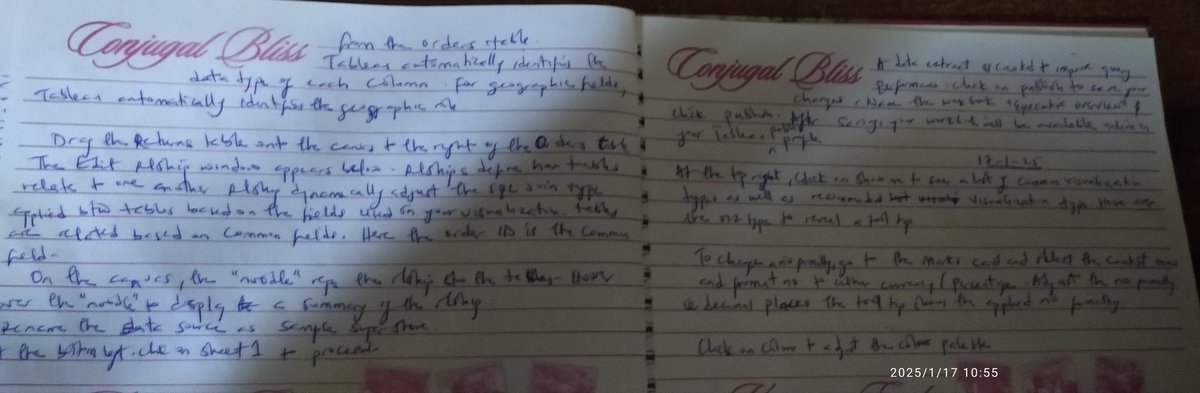 Conjugal Bliss from the orders table.
Tableau automatically identifies the
data type of each column. For geographic fields,
Tableau automatically identifies the geographic role
Drag the Returns table onto the canvas to the right of the Orders table
The Edit Rlship window appears below. Rlships define how tables
relate to one another Rlship dynamically adjust the SQL join type
applied btw tables based on the fields used in your visualization. tables
are related based on common fields. Here the order ID is the common
field.
On the canvas, the "noodle" reps the rlship the Hover
over the "noodle" to display a summary of the rlship
Rename the data source as sample super store.
the bottom left. click on sheet 1 to proceed.
Conjugal Bliss A data extract is created to improve query
Performance. click on publish to save your
changes. Name the workbook "Executive overview" &
click publish. After saving your workbook will be available online in
your Tableau public profile
17-1-25
At the top right, click on show me to see a list of common visualization
types as well as recommended visualization type. Hover over
the viz type to reveal a tool tip.
To change no , go to the Marks card and select the context
and format no to either currency / Percentage. Adjust the no
decimal places the tool tip shows the applied no
Click on colour to adjust the colour palette
2025/1/17 10:55